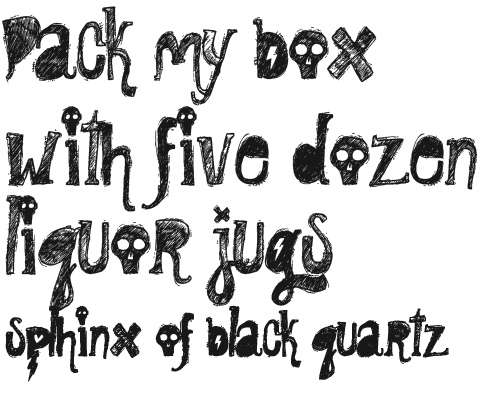 pack my box
with five dozen
liquor jugs
sphinx of black quartz